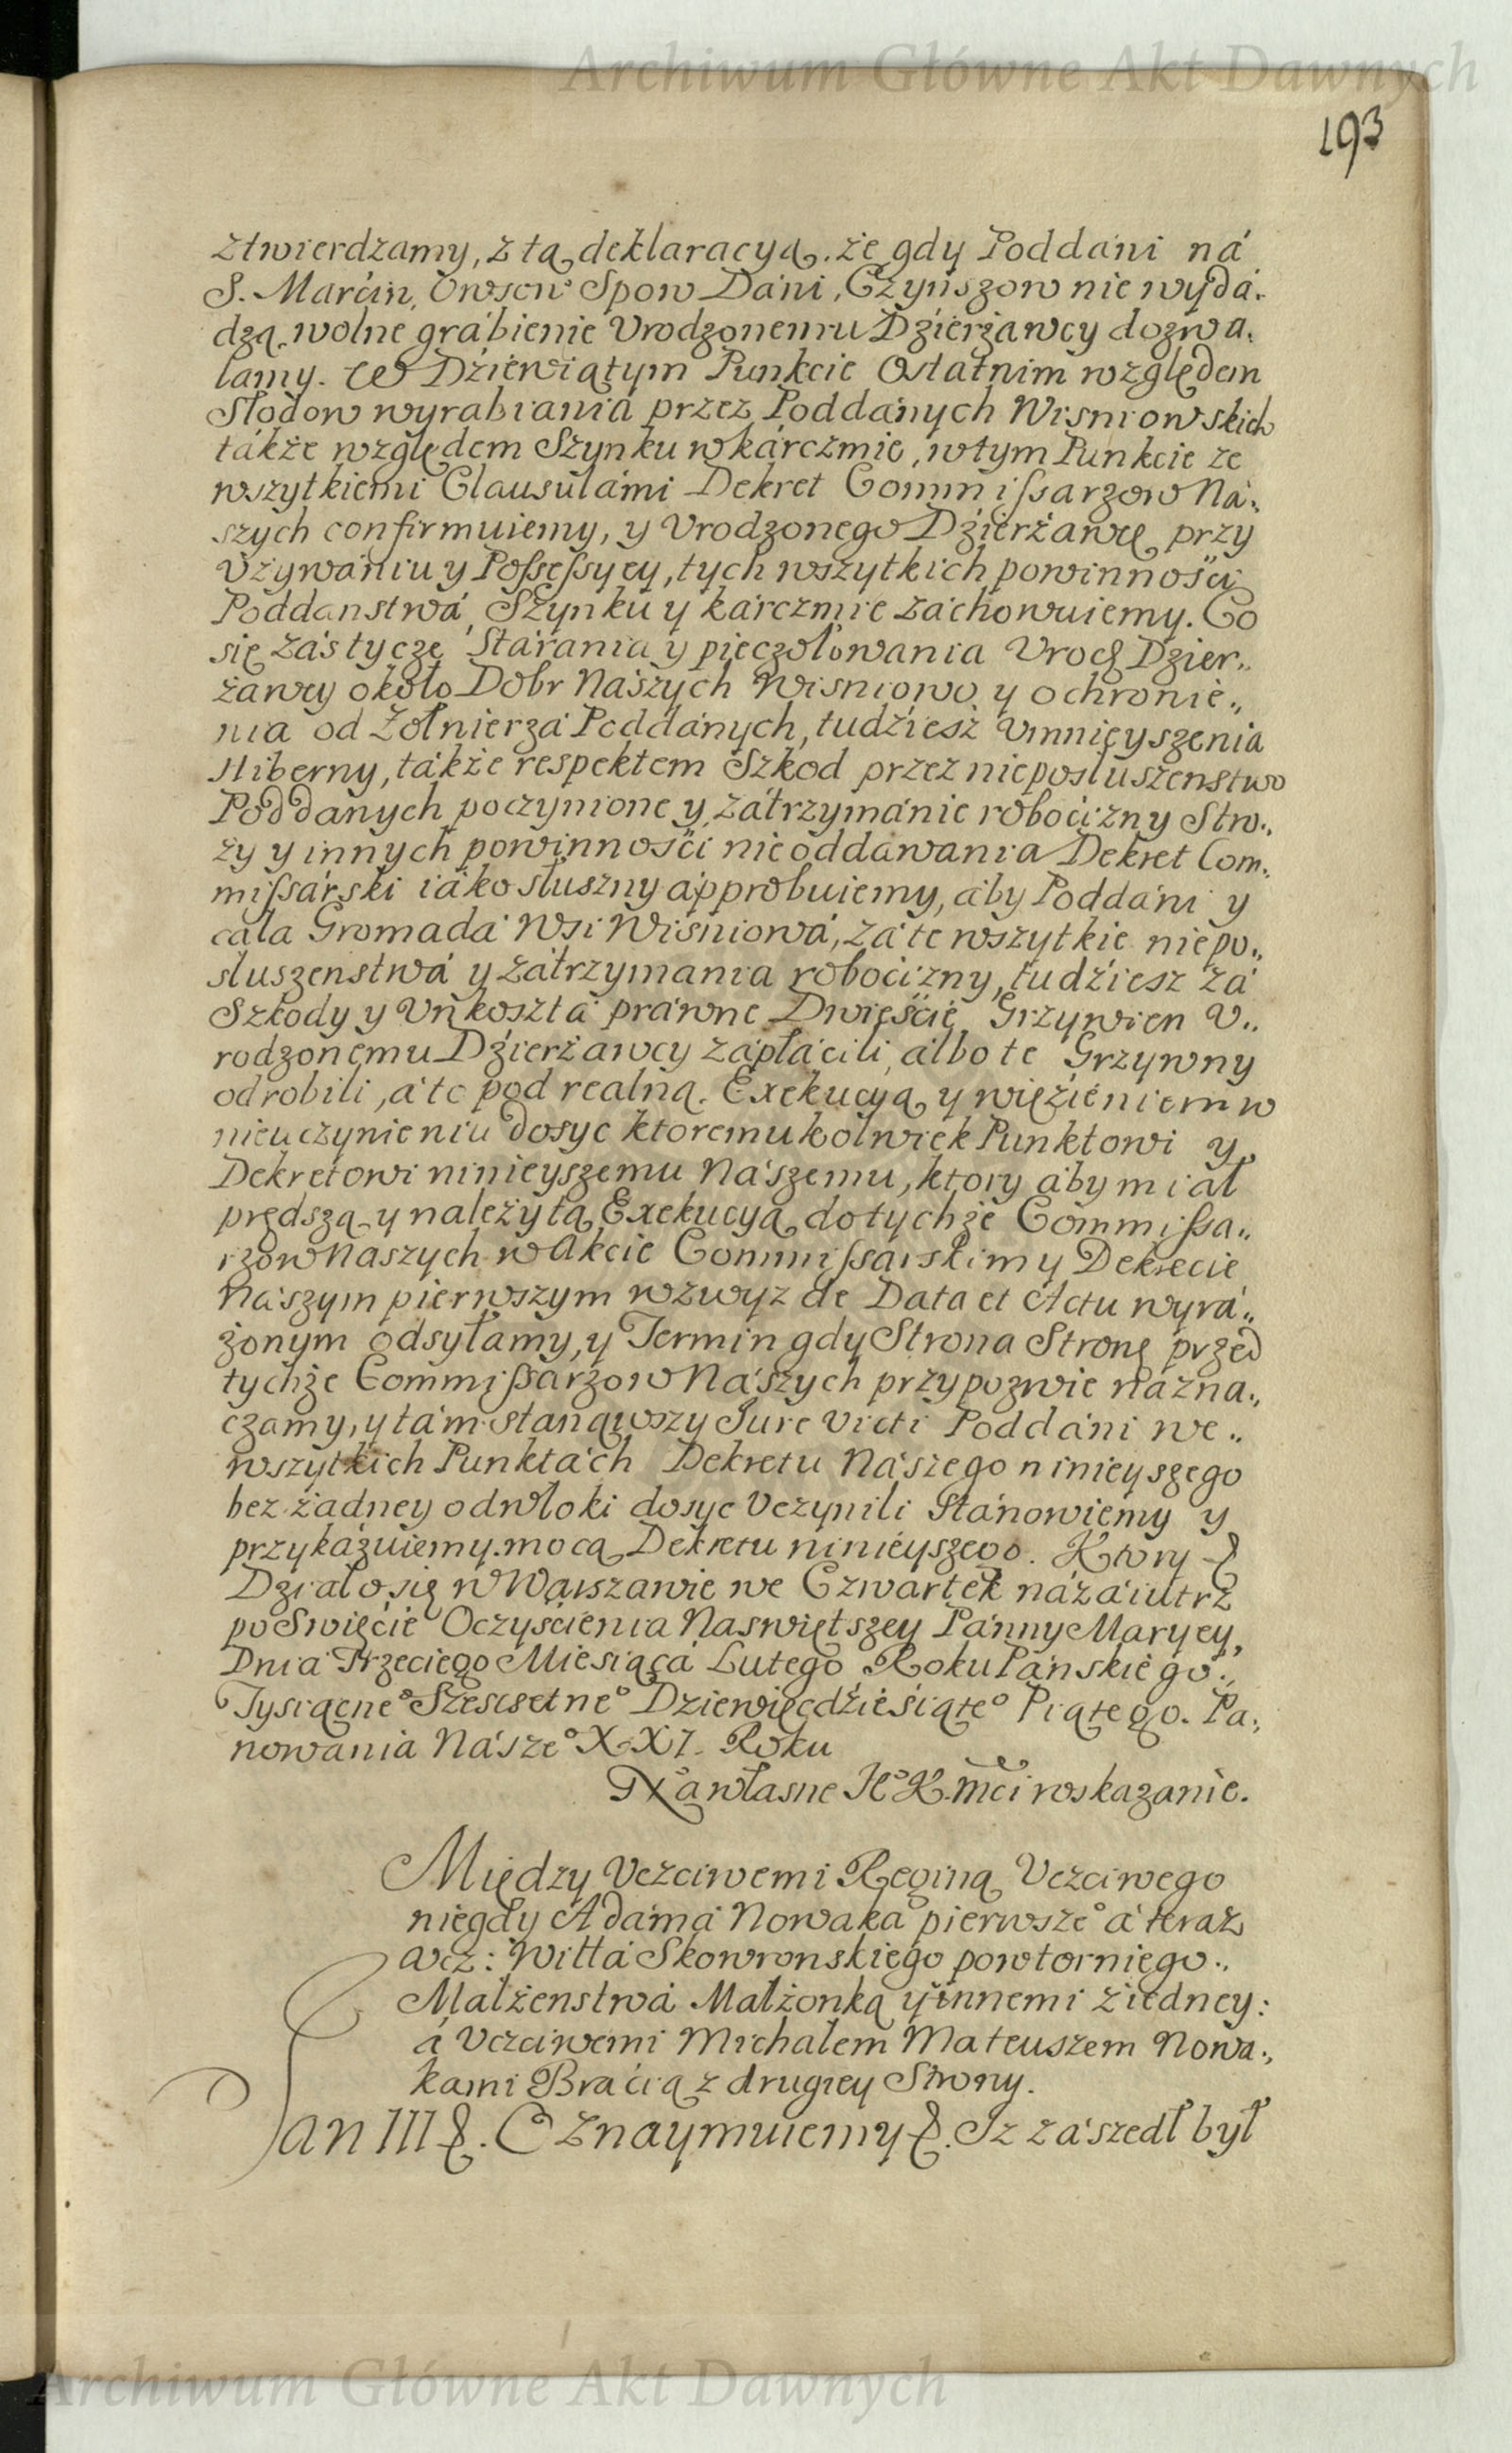 Archiwum Główne Akt Dawnych
193
ztwierdzamy, z tą deklaracyą. że gdy Poddáni ná
S. Marćin, Owsow Spow Dáni, Czynszow nie wydá..
dzą, wolne grábienie Vrodzonemu Dzierżawcy dozwa..
lamy. W Dziewiątym Punkcie Ostatnim względem
Słodow wyrabiániá przez Poddánych Wisniowskich
tákże względem Szynku w kárczmie, w tym Punkcie ze
wszytkiemi Clausulámi Dekret Commissarzow Ná..
szych confirmuiemy, y Vrodzonego Dzierżáwcę przy
Vżywániu y Possessyey, tych wszytkich powinnośći
Poddanstwá, Szynku y kárczmie záchowuiemy. Co
się zás tycze Stárania y pieczołowania Vrodz Dzier..
żawcy około Dobr Nászych Wisniowo y ochronie..
nia od Zołnierzá Poddánych, tudźiesz Vmnieyszenia
Hiberny, tákże respektem Szkod przez nieposłuszenstwo
Poddanych poczynione y zátrzymánie roboćizny Stro..
ży y innych powinnośći nieoddáwania Dekret Com..
missárski iáko słuszny ápprobuiemy, áby Poddáni y
cáła Gromadá Wsi Wiśniowá, zá te wszytkie niepo..
słuszenstwá y zátrzymania roboćizny, tudźiesz zá
Szkody y Vnkosztá práwne Dwieśćie Grzywien V..
rodzonemu Dzierżawcy zápłáćili, álbo te Grzywny
odrobili, á to pod realną Exekucyą y więźieniem w
nieuczynieniu dosyc ktoremukolwiek Punktowi y
Dekretowi ninieyszemu Nászemu, ktory áby miał
prędszą y należytą Exekucyą do tychże Commissa..
rzow Naszych w Akcie Commissarskim y Dekrecie
Nászym pierwszym wzwyz de Data et Actu wyrá..
żonym odsyłamy, y Termin gdy Strona Stronę przed
tychże Commissarzow Nászych przypozwie názna..
czamy, y tám stanąwszy Jure Victi Poddáni we..
wszytkich Punktách Dekretu Nászego ninieyszego
bez żadney odwłoki dosyc Vczynili Stánowiemy y
przykázuiemy mocą Dekretu ninieyszego. Ktory &
Dzialo się w Warszawie we Czwartek názáiutrz
po Swięcie Oczyśćienia Naswiętszey Pánny Maryey,
Dnia Trzeciego Miesiącá Lutego Roku Pánskiego..
Tysiącne° Szescsetne° Dziewięcdźieśiąte° Piątego. Pa..
nowania Násze° XXI. Roku
Na własne JK°K. Mći roskazanie.
Między Vczciwemi Reginą Vczciwego
niegdy Adámá Nowaká pierwsze° á teraz
Vcz: Wittá Skowronskiego powtorniego..
Małżenstwá Małżonką y innemi z iedney:
á Vczciwemi Michałem Mateuszem Nowa..
kami Bráćią z drugiey Strony.
Jan III &. Oznaymuiemy &. Iz zászedł był
Archiwum Główne Akt Dawnych